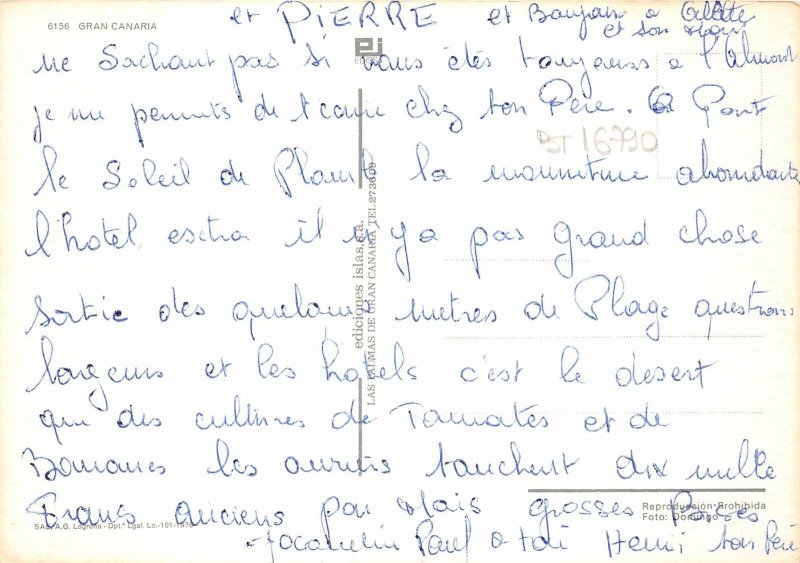 6156 GRAN CANARIA
et PIERRE et Bonjour a
et son
ne Sachant pas si vous étés toujours a l'
je me permets de t'ecrire chez ton Père. a Part
ST 16790
le Soleil de Plomb la nourriture abondante
l'hotel extra il n'y a pas grand chose
sortie des quelques metres de Plage questions
largeurs et les hotels c'est le desert
que des cultures de Tomates et de
Bananes les ouvriers touchent dix mille
Frans anciens par Mois grosses Bises
Paul a toi Henri ton Père
ediciones islas,s.a.
LAS PALMAS DE GRAN CANARIA TEL.273609
Reproducción Prohibida
Foto: Domingo